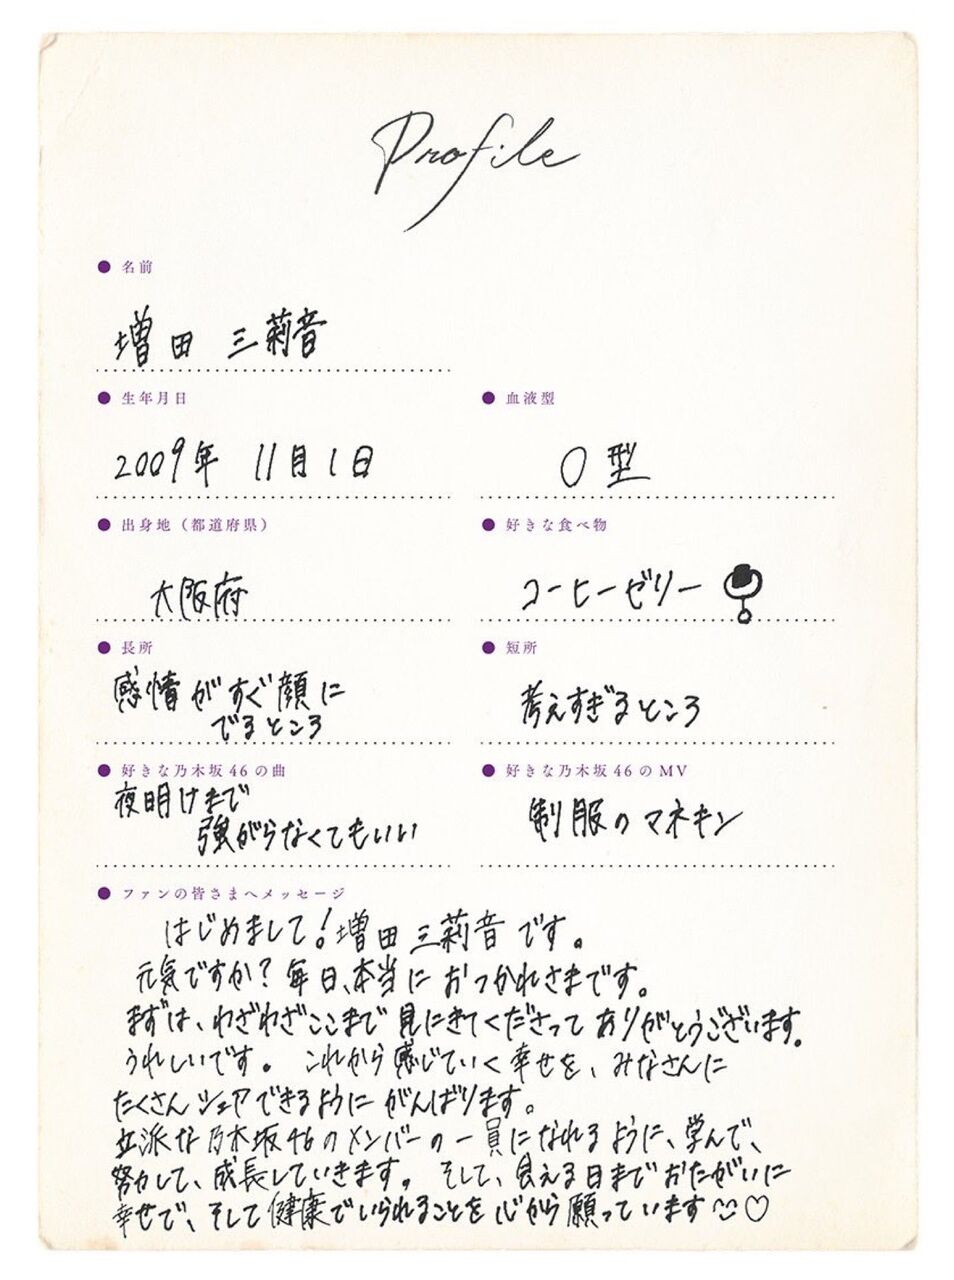 Profile
● 名前
増田 三莉音
● 生年月日
2009年 11月1日
● 血液型
O型
● 出身地（都道府県）
大阪府
● 好きな食べ物
コーヒーゼリー
● 長所
感情がすぐ顔に
でるところ
● 短所
考えすぎるところ
● 好きな乃木坂46の曲
夜明けまで
強がらなくてもいい
● 好きな乃木坂46のMV
制服のマネキン
● ファンの皆さまへメッセージ
はじめまして！増田 三莉音です。
元気ですか？毎日、本当に おつかれさまです。
まずは、わざわざここまで 見にきてくださって ありがとうございます。
うれしいです。 これから感じていく幸せを、みなさんに
たくさん シェアできるように がんばります。
立派な乃木坂46のメンバーの一員になれるように、学んで、
努力して、成長していきます。 そして、会える日まで おたがいに
幸せで、そして健康でいられることを心から願っています♡